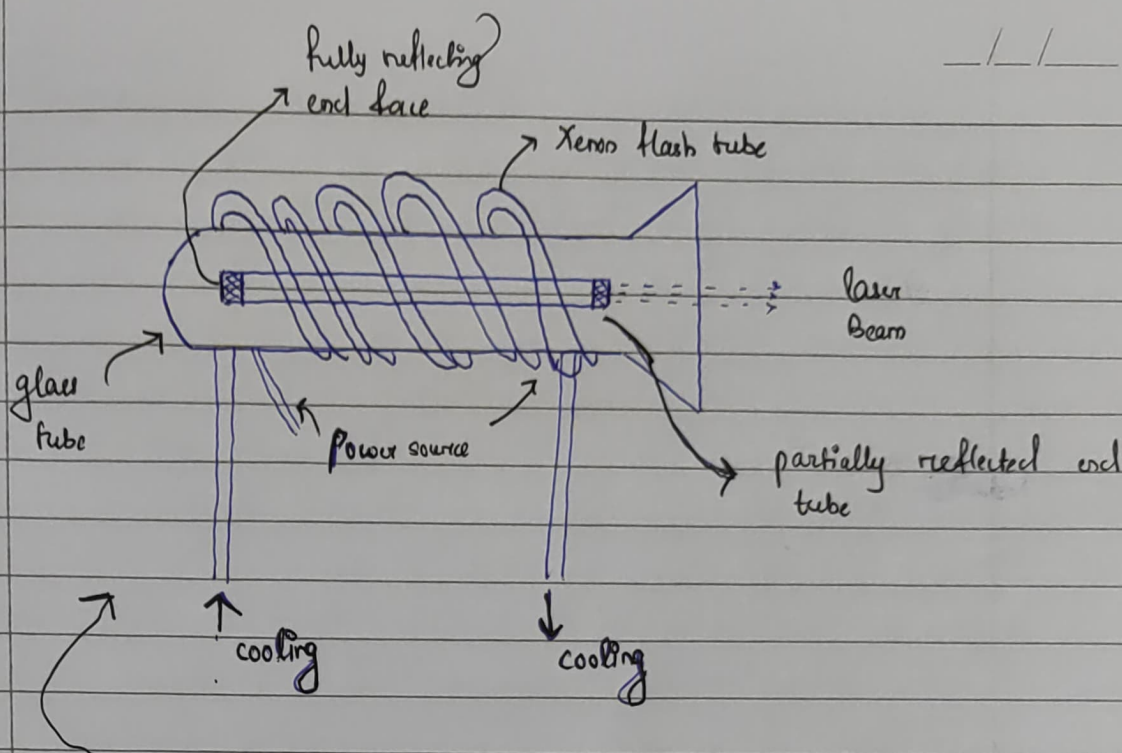 __/__/__
fully reflecting
end face
Xenon flash tube
laser
Beam
glass
tube
Power source
partially reflected end
tube
cooling
cooling